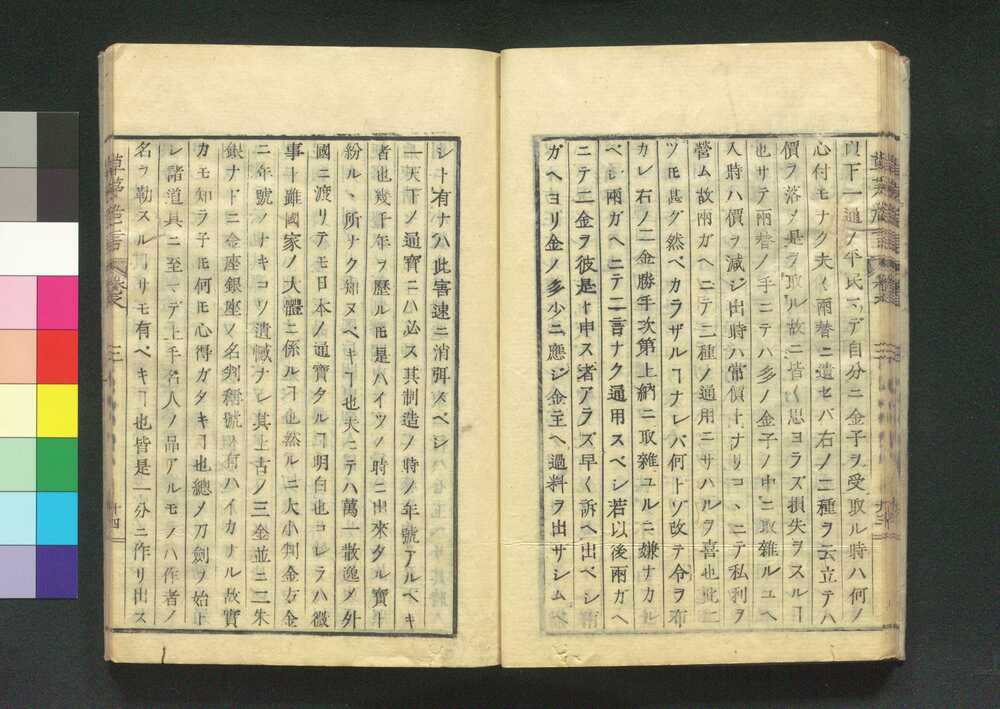 以下一通ノ平民マデ自分ニ金子ヲ受取ル時ハ何ノ
心付モナク夫〻両替ニ遣セバ右ノ二種ヲ云立テハ
價ヲ落メ是ヲ取ル故ニ皆〻思ヨラズ損失ヲスルヿ
也サテ両替ノ手ニテハ多ノ金子ノ中ニ取雑ルユヘ
入時ハ價ヲ減ジ出時ハ常價ナリコヽニテ私利ヲ
營ム故両ガヘニテ二種ノ通用ニサハルヲ喜也此二
ツモ甚ダ然ベカラザルヿナレバ何トゾ改テ令ヲ布
カレ右ノ二金勝手次第上納ニ取雜ユルニ嫌ナカル
ベシ両ガヘニテ二言ナク通用スベシ若以後両ガヘ
ニテ二金ヲ彼是ト申ス者アラズ早ク訴ヘ出ベシ両
ガヘヨリ金ノ多少ニ應ジ金主ヘ過料ヲ出サシムベ
シト有ナハ此害速ニ消弭スベシ
一天下ノ通寶ニハ必ス其制造ノ時ノ年號アルベキ
者也幾千年ヲ歴ルモ是ハイツノ時ニ出來タル寶ト
紛ルヽ所ナク知ヌベキヿ也夫ニテハ萬一散逸メ外
國ニ渡リテモ日本ノ通寶タルヿ明白也コレラハ微
事ト雖國家ノ大體ニ係ルヿ也然ルニ大小判金方金
ニ年號ノナキコソ遺憾ナレ其上古ノ三金並ニ二朱
銀ナドニ金座銀座ノ名判稱號ハ有ハイカナル故實
カモ知ラ子モ何モ心得ガタキヿ也總ノ刀劍ヲ始ト
レ諸道具ニ至マデ上手名人ノ品アルモノハ作者ノ
名ヲ勒スル サモ有ベキヿ也皆是一分ニ作リ出ス
草茅危言
巻
三
十四